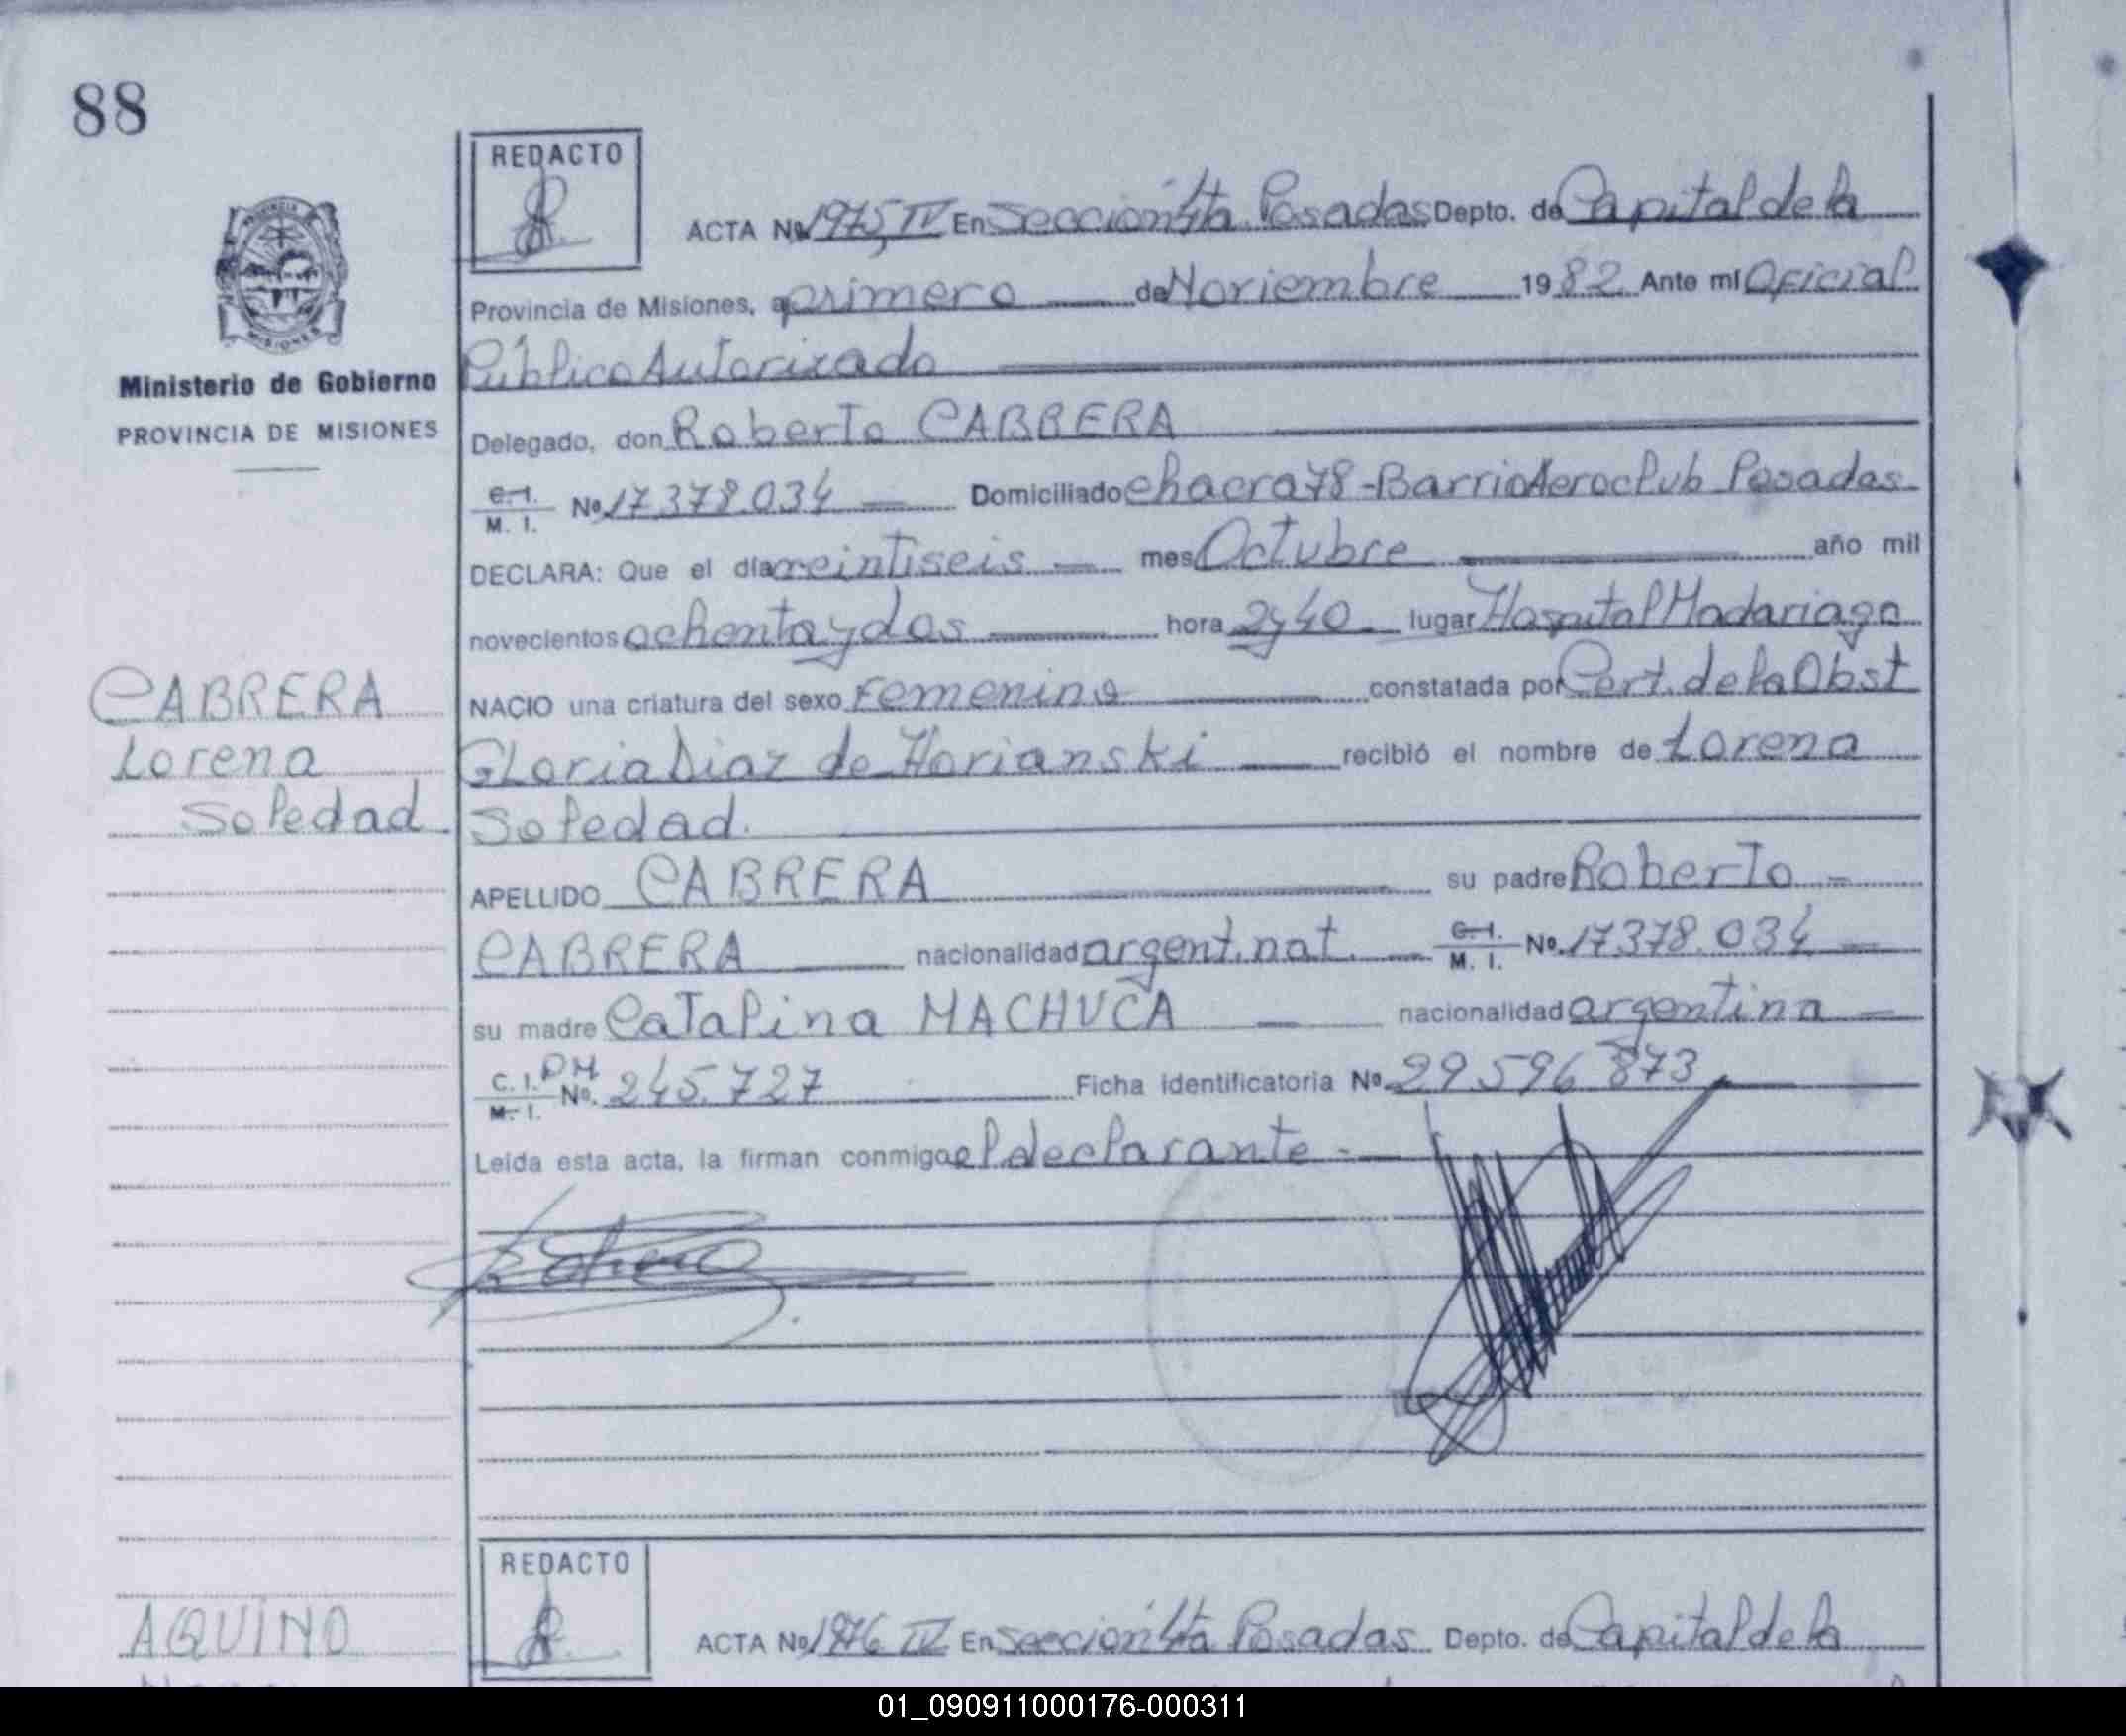 88
REDACTO
ACTA Nº 1975, IV En Sección 4ta. Posadas Depto. de Capital de la
Provincia de Misiones, a primero de Noviembre 1982 Ante mí Oficial
Público Autorizado
Ministerio de Gobierno
PROVINCIA DE MISIONES
Delegado, don Roberto CABRERA
C.I. M. I. Nº 17.378.034 Domiciliado Chacra 78 - Barrio Aeroclub Posadas
DECLARA: Que el día veintiseis mes Octubre año mil
novecientos ochenta y dos hora 2y40 lugar Hospital Madariaga
CABRERA
Lorena
Soledad
NACIO una criatura del sexo Femenino constatada por Cert. de la Obst
Gloria Diaz de Horianski recibió el nombre de Lorena
Soledad.
APELLIDO CABRERA su padre Roberto
CABRERA nacionalidad argent. nat. C.I. M. I. Nº 17.378.034
su madre Catalina MACHUCA nacionalidad argentina
C. I. M. I. DM Nº 245.727 Ficha identificatoria Nº 29 596 873
Leída esta acta, la firman conmigo el declarante -
REDACTO
AQUINO
ACTA Nº 1976 IV En Sección 4ta Posadas Depto. de Capital de la
01_090911000176-000311